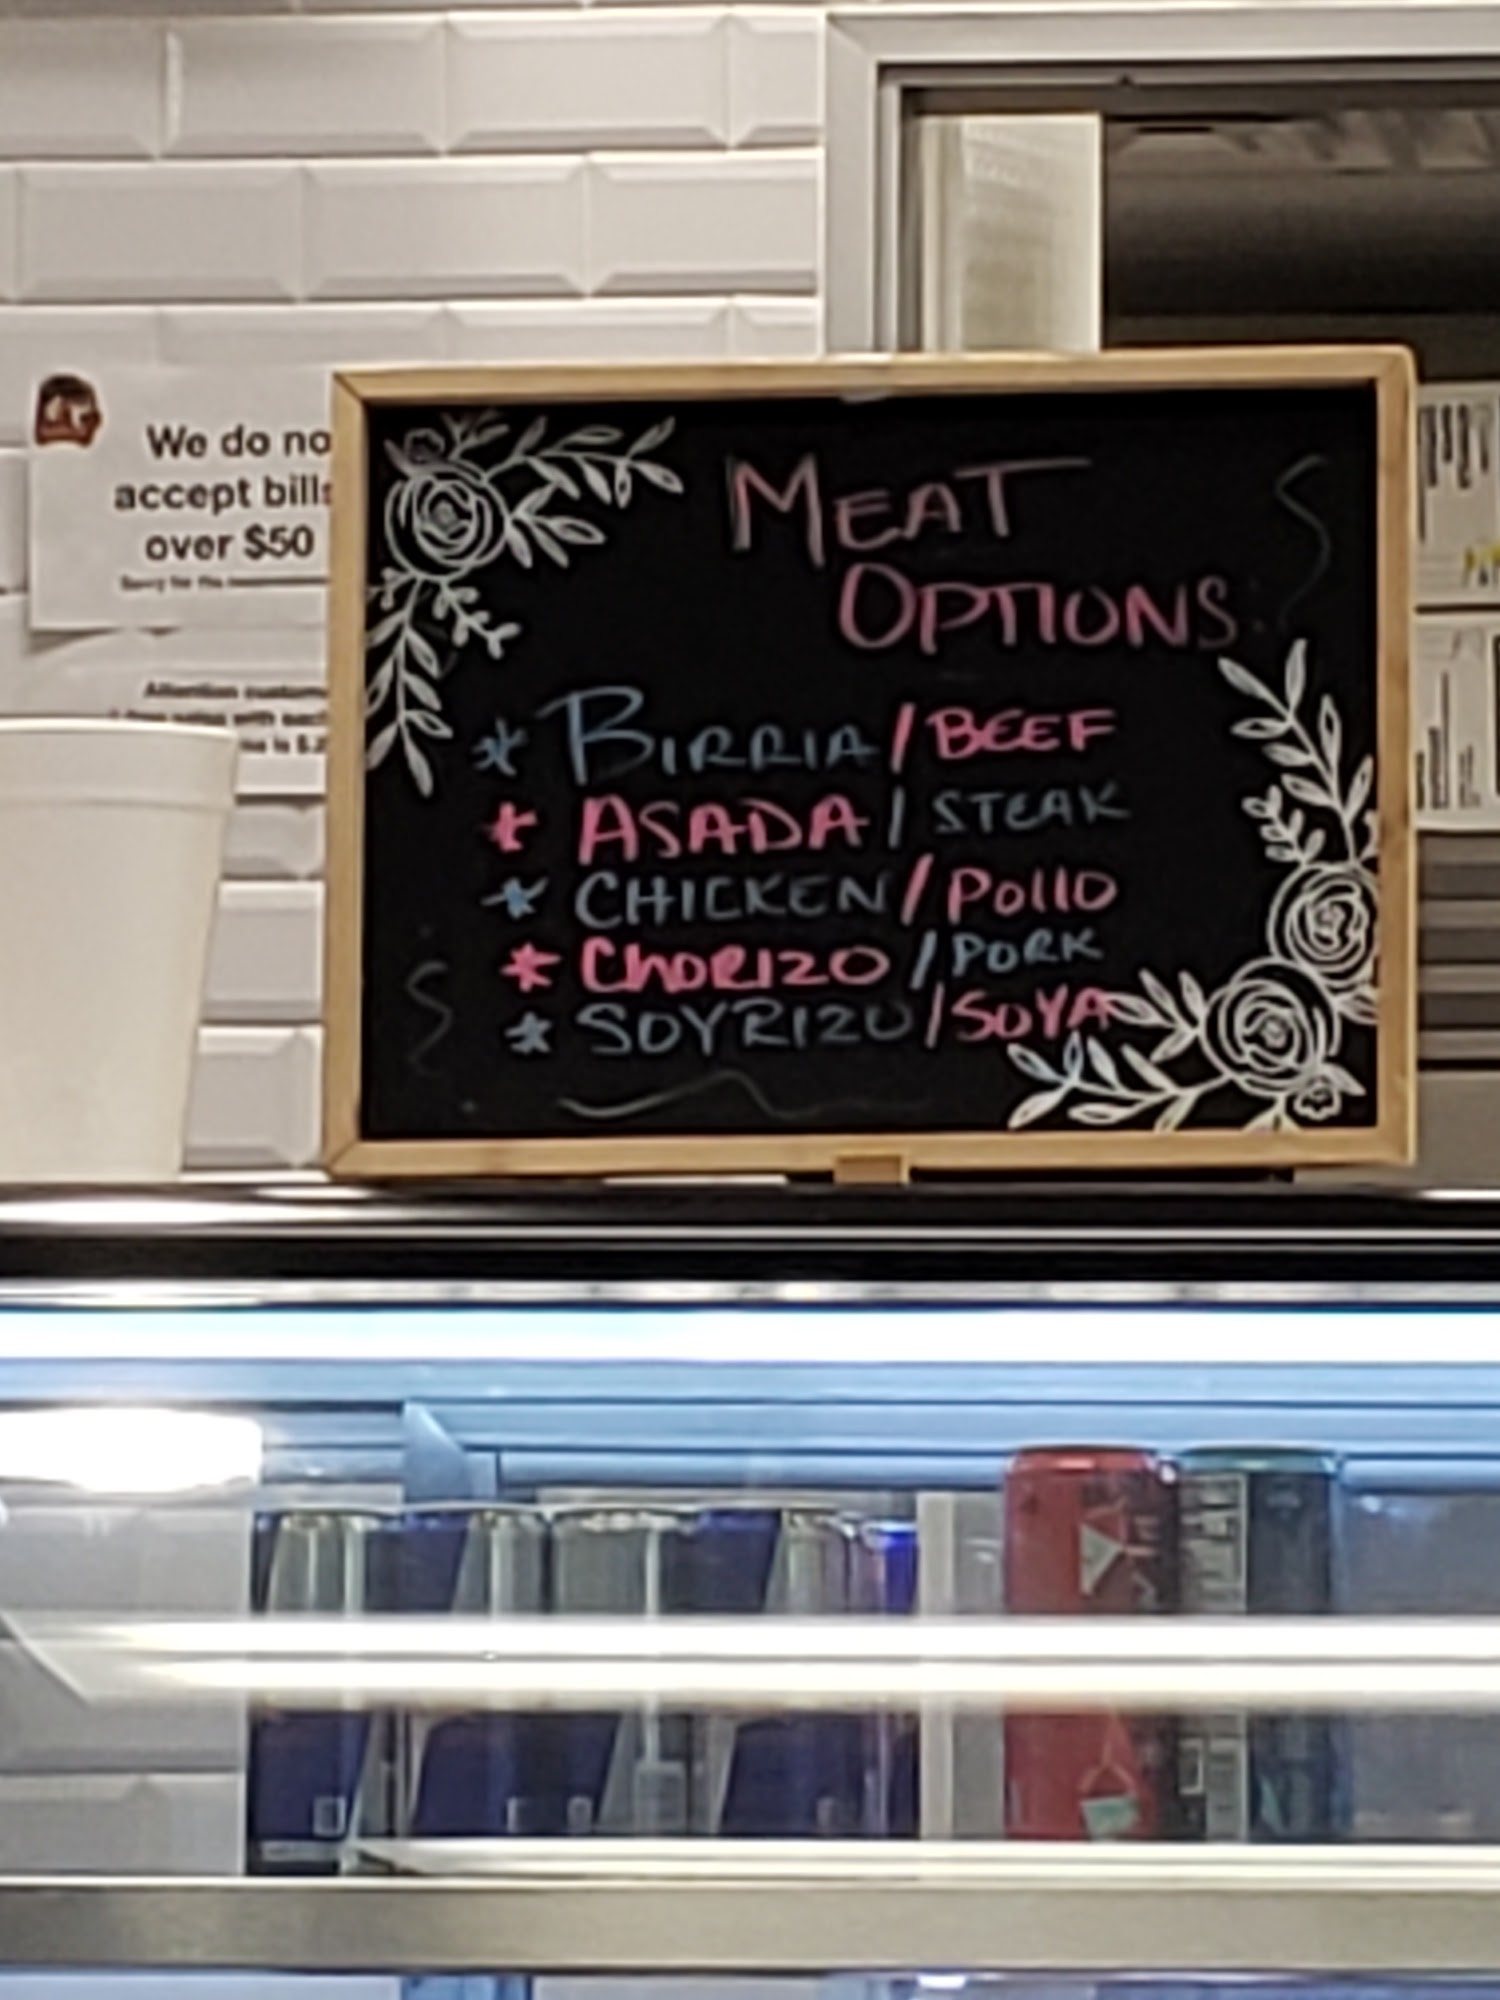 We do no
accept bills
over $50
Sorry for the
Attention custom
MEAT
OPTIONS
* BIRRIA / BEEF
* ASADA / STEAK
* CHICKEN / Pollo
* ChORIZO / PORK
* SOYRIZO / SOYA